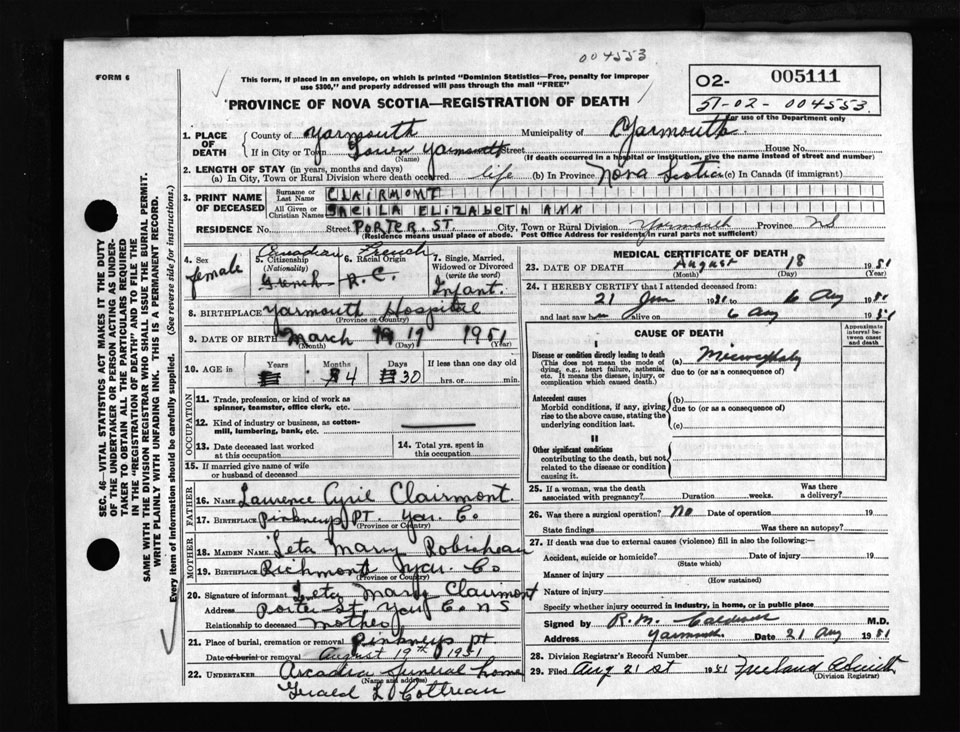 004553
FORM 6
This form, if placed in an envelope, on which is printed "Dominion Statistics—Free, penalty for improper
use $300," and properly addressed will pass through the mail "FREE"
02- 005111
51-02-004553
For use of the Department only
PROVINCE OF NOVA SCOTIA—REGISTRATION OF DEATH
1. PLACE OF DEATH
County of Yarmouth Municipality of Yarmouth
If in City or Town Town Yarmouth Street House No.
(Name) (If death occurred in a hospital or institution, give the name instead of street and number)
2. LENGTH OF STAY (in years, months and days)
(a) In City, Town or Rural Division where death occurred life (b) In Province Nova Scotia (c) In Canada (if immigrant)
3. PRINT NAME OF DECEASED
Surname or Last Name CLAIRMONT
All Given or Christian Names SHEILA ELIZABETH ANN
RESIDENCE No. Street PORTER. ST. City, Town or Rural Division Yarmouth Province NS
(Residence means usual place of abode. Post Office Address for residents in rural parts not sufficient)
4. Sex female
5. Citizenship (Nationality) Canadian French
6. Racial Origin French R.C.
7. Single, Married, Widowed or Divorced (write the word) Infant.
8. BIRTHPLACE Yarmouth Hospital
(Province or Country)
9. DATE OF BIRTH March 19 1951
(Month) (Day) (Year)
10. AGE in Years Months 4 Days 30 If less than one day old
hrs. or min.
OCCUPATION
11. Trade, profession, or kind of work as
spinner, teamster, office clerk, etc.
12. Kind of industry or business, as cotton-
mill, lumbering, bank, etc.
13. Date deceased last worked
at this occupation
14. Total yrs. spent in
this occupation
15. If married give name of wife
or husband of deceased
FATHER
16. NAME Laurence Cyril Clairmont.
17. BIRTHPLACE Pinkneys PT. Yar. Co.
(Province or Country)
MOTHER
18. MAIDEN NAME Leta Mary Robicheau
19. BIRTHPLACE Richmond Yar. Co
(Province or Country)
20. Signature of informant Leta Mary Clairmont
Address Porter St. Yar. Co. NS
Relationship to deceased mother
21. Place of burial, cremation or removal Pinkneys Pt
Date of burial or removal August 19th 1951
22. UNDERTAKER Arcadia Funeral home
(Name and address)
Gerald L. Cottreau
MEDICAL CERTIFICATE OF DEATH
23. DATE OF DEATH August 18 1951
(Month) (Day) (Year)
24. I HEREBY CERTIFY that I attended deceased from
21 Jun 1951 to 6 Aug 1951
and last saw h alive on 6 Aug 1951
CAUSE OF DEATH
Approximate interval between onset and death
I
Disease or condition directly leading to death
(This does not mean the mode of
dying, e.g., heart failure, asthenia,
etc. It means the disease, injury, or
complication which caused death.)
(a)
due to (or as a consequence of)
Antecedent causes
Morbid conditions, if any, giving
rise to the above cause, stating the
underlying condition last.
(b)
due to (or as a consequence of)
(c)
II
Other significant conditions
contributing to the death, but not
related to the disease or condition
causing it.
25. If a woman, was the death
associated with pregnancy? Duration weeks. Was there
a delivery?
26. Was there a surgical operation? No Date of operation 19
State findings Was there an autopsy?
27. If death was due to external causes (violence) fill in also the following:—
Accident, suicide or homicide? Date of injury 19
(State which)
Manner of injury
(How sustained)
Nature of injury
Specify whether injury occurred in industry, in home, or in public place
Signed by R.M. Caldwell M.D.
Address Yarmouth. Date 21 Aug 1951
28. Division Registrar's Record Number
29. Filed Aug 21st 1951
(Division Registrar)
SEC. 46—VITAL STATISTICS ACT MAKES IT THE DUTY
OF THE UNDERTAKER OR PERSON ACTING AS UNDER-
TAKER TO OBTAIN ALL THE PARTICULARS REQUIRED
IN THE "REGISTRATION OF DEATH" AND TO FILE THE
SAME WITH THE DIVISION REGISTRAR WHO SHALL ISSUE THE BURIAL PERMIT.
WRITE PLAINLY WITH UNFADING INK. THIS IS A PERMANENT RECORD.
Every item of information should be carefully supplied. (See reverse side for instructions.)